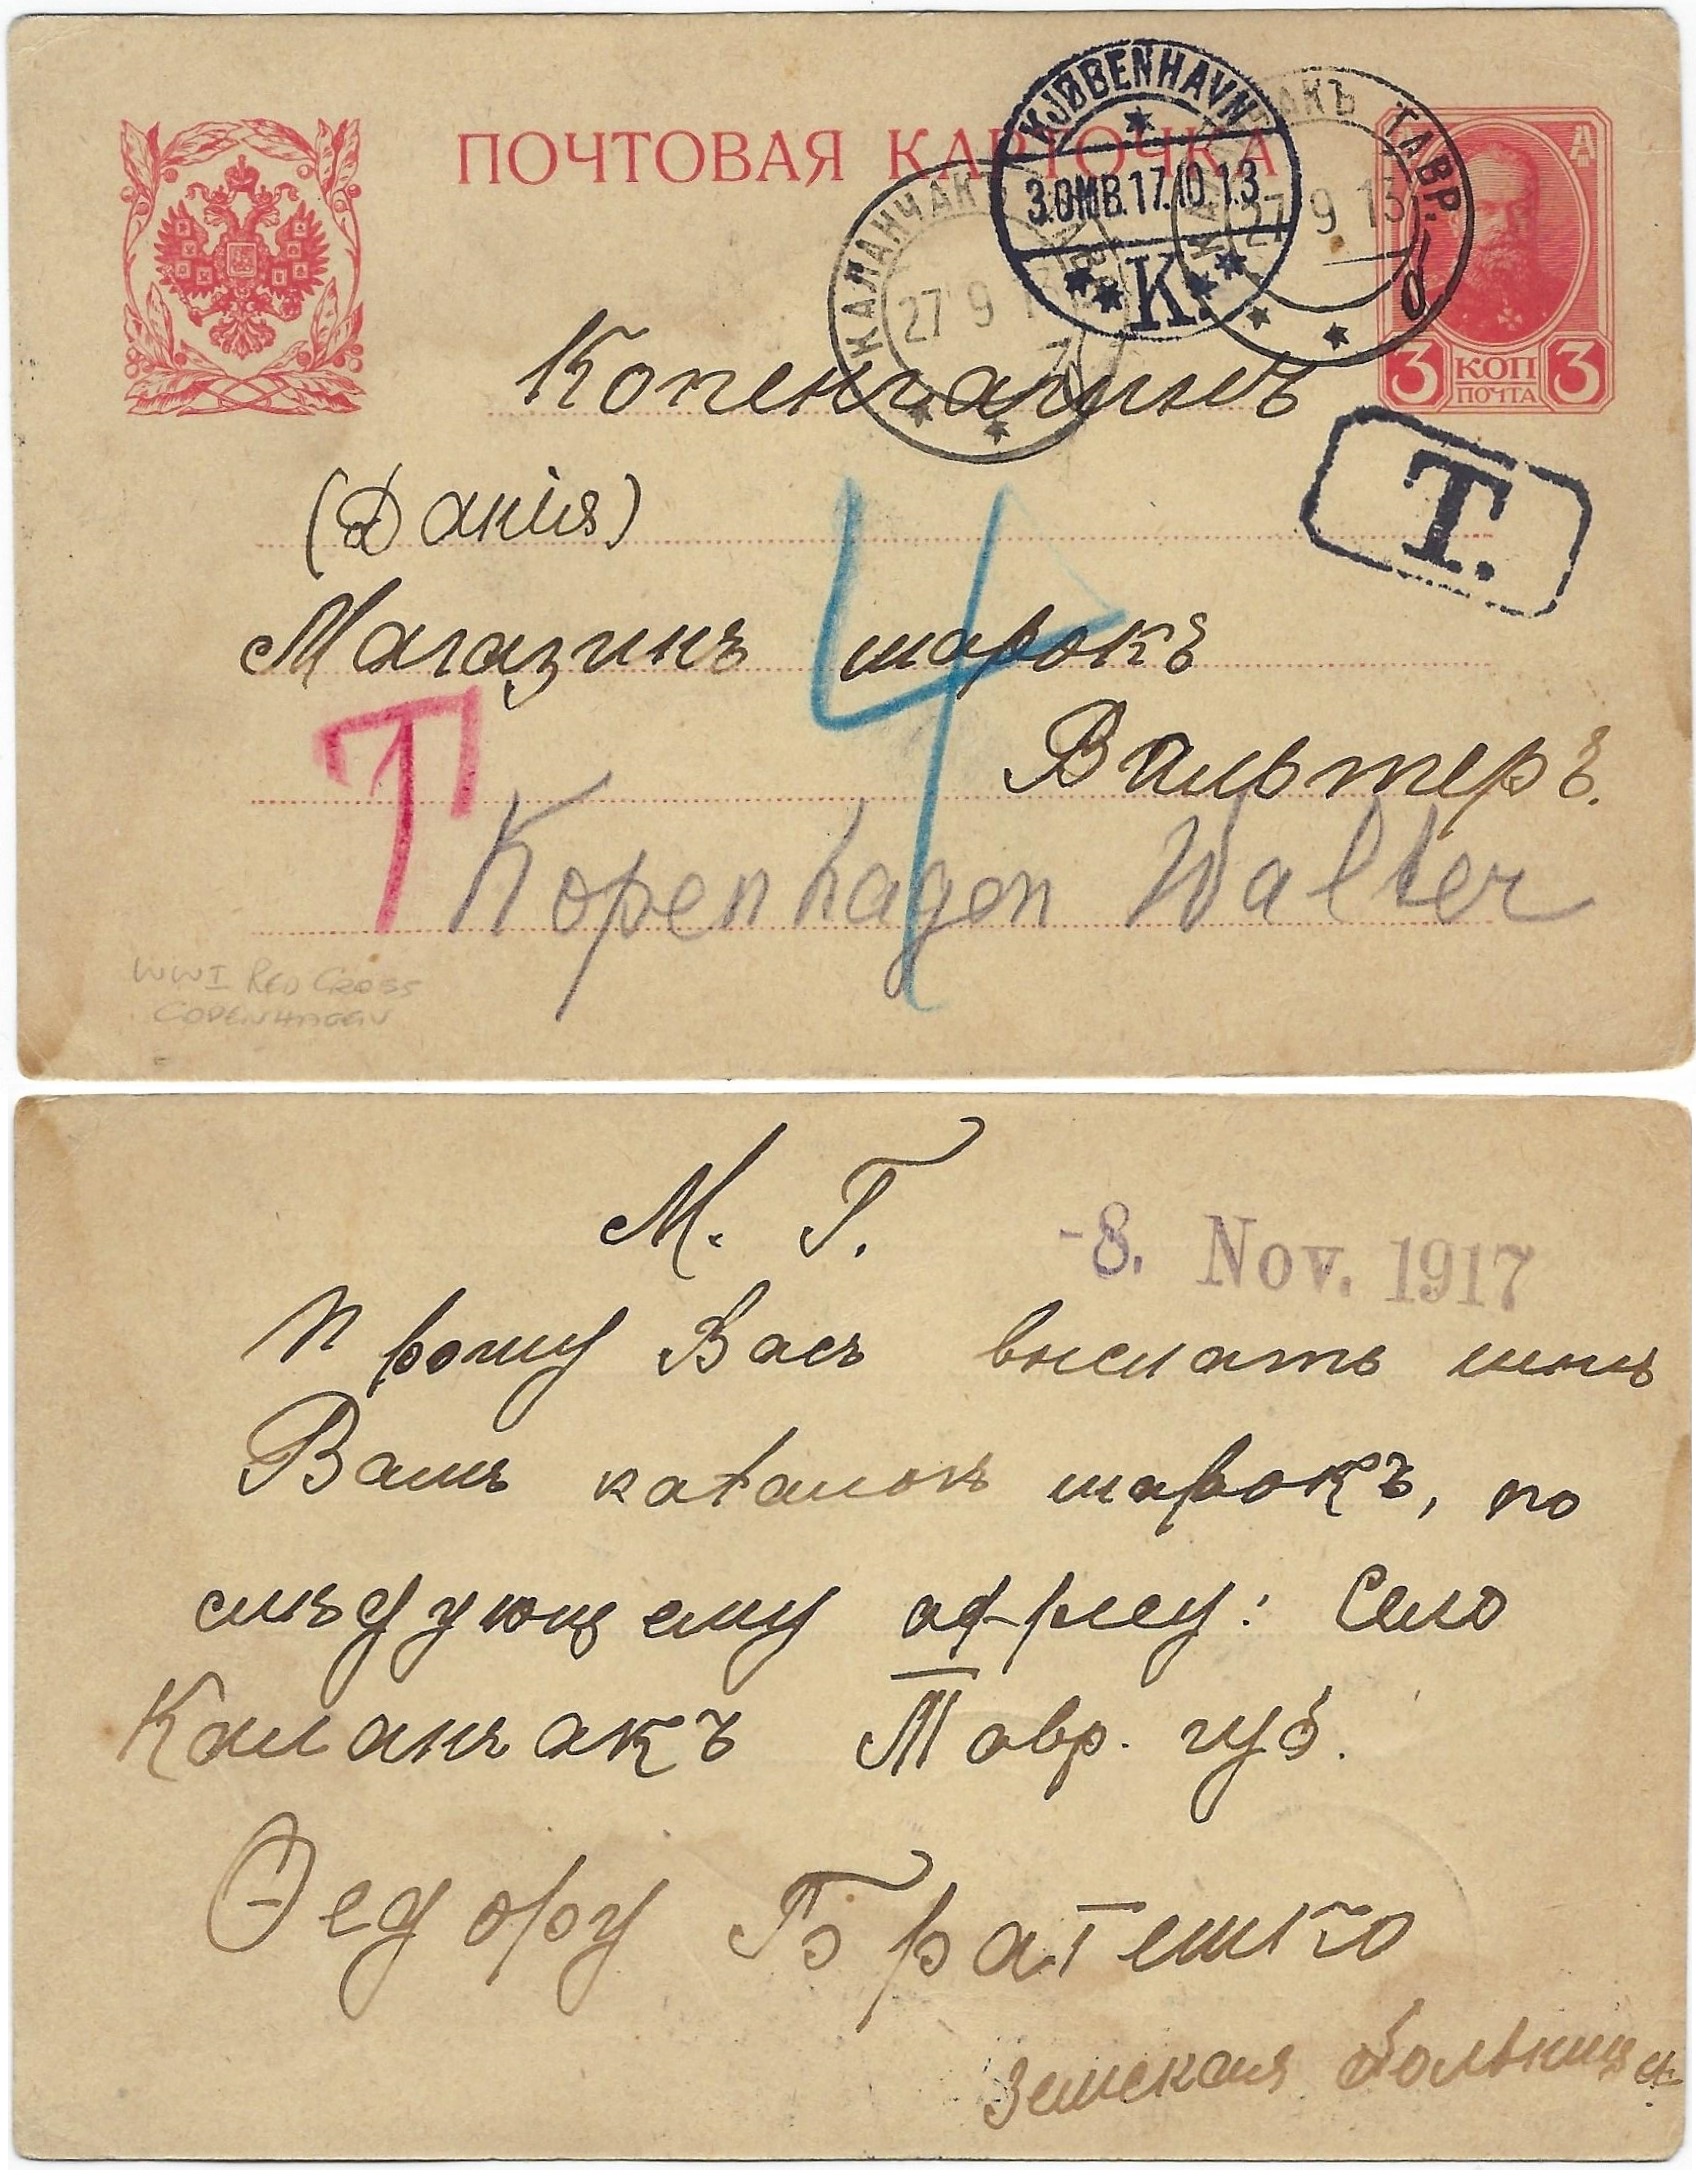 ПОЧТОВАЯ КАРТОЧКА
KJØBENHAVN
3.0MB.17.10.13
K.
КАЛАНЧАКЪ ТАВР.
27 9 13
КАЛАНЧАКЪ ТАВР. б
27 9 13
3 КОП 3
ПОЧТА
Копенгагинъ
T.
(Данія)
Магазинъ марокъ
4
Вальтеръ.
T
Kopenhagen Walter
WWI RED CROSS
COPENHAGEN
М. Г.
-8. Nov. 1917
Прошу Васъ выслать мнѣ
Вашъ каталокъ марокъ, по
слѣдующему адресу: Село
Каланчакъ Тавр. губ.
Ѳедору Братешко
Земская больница.